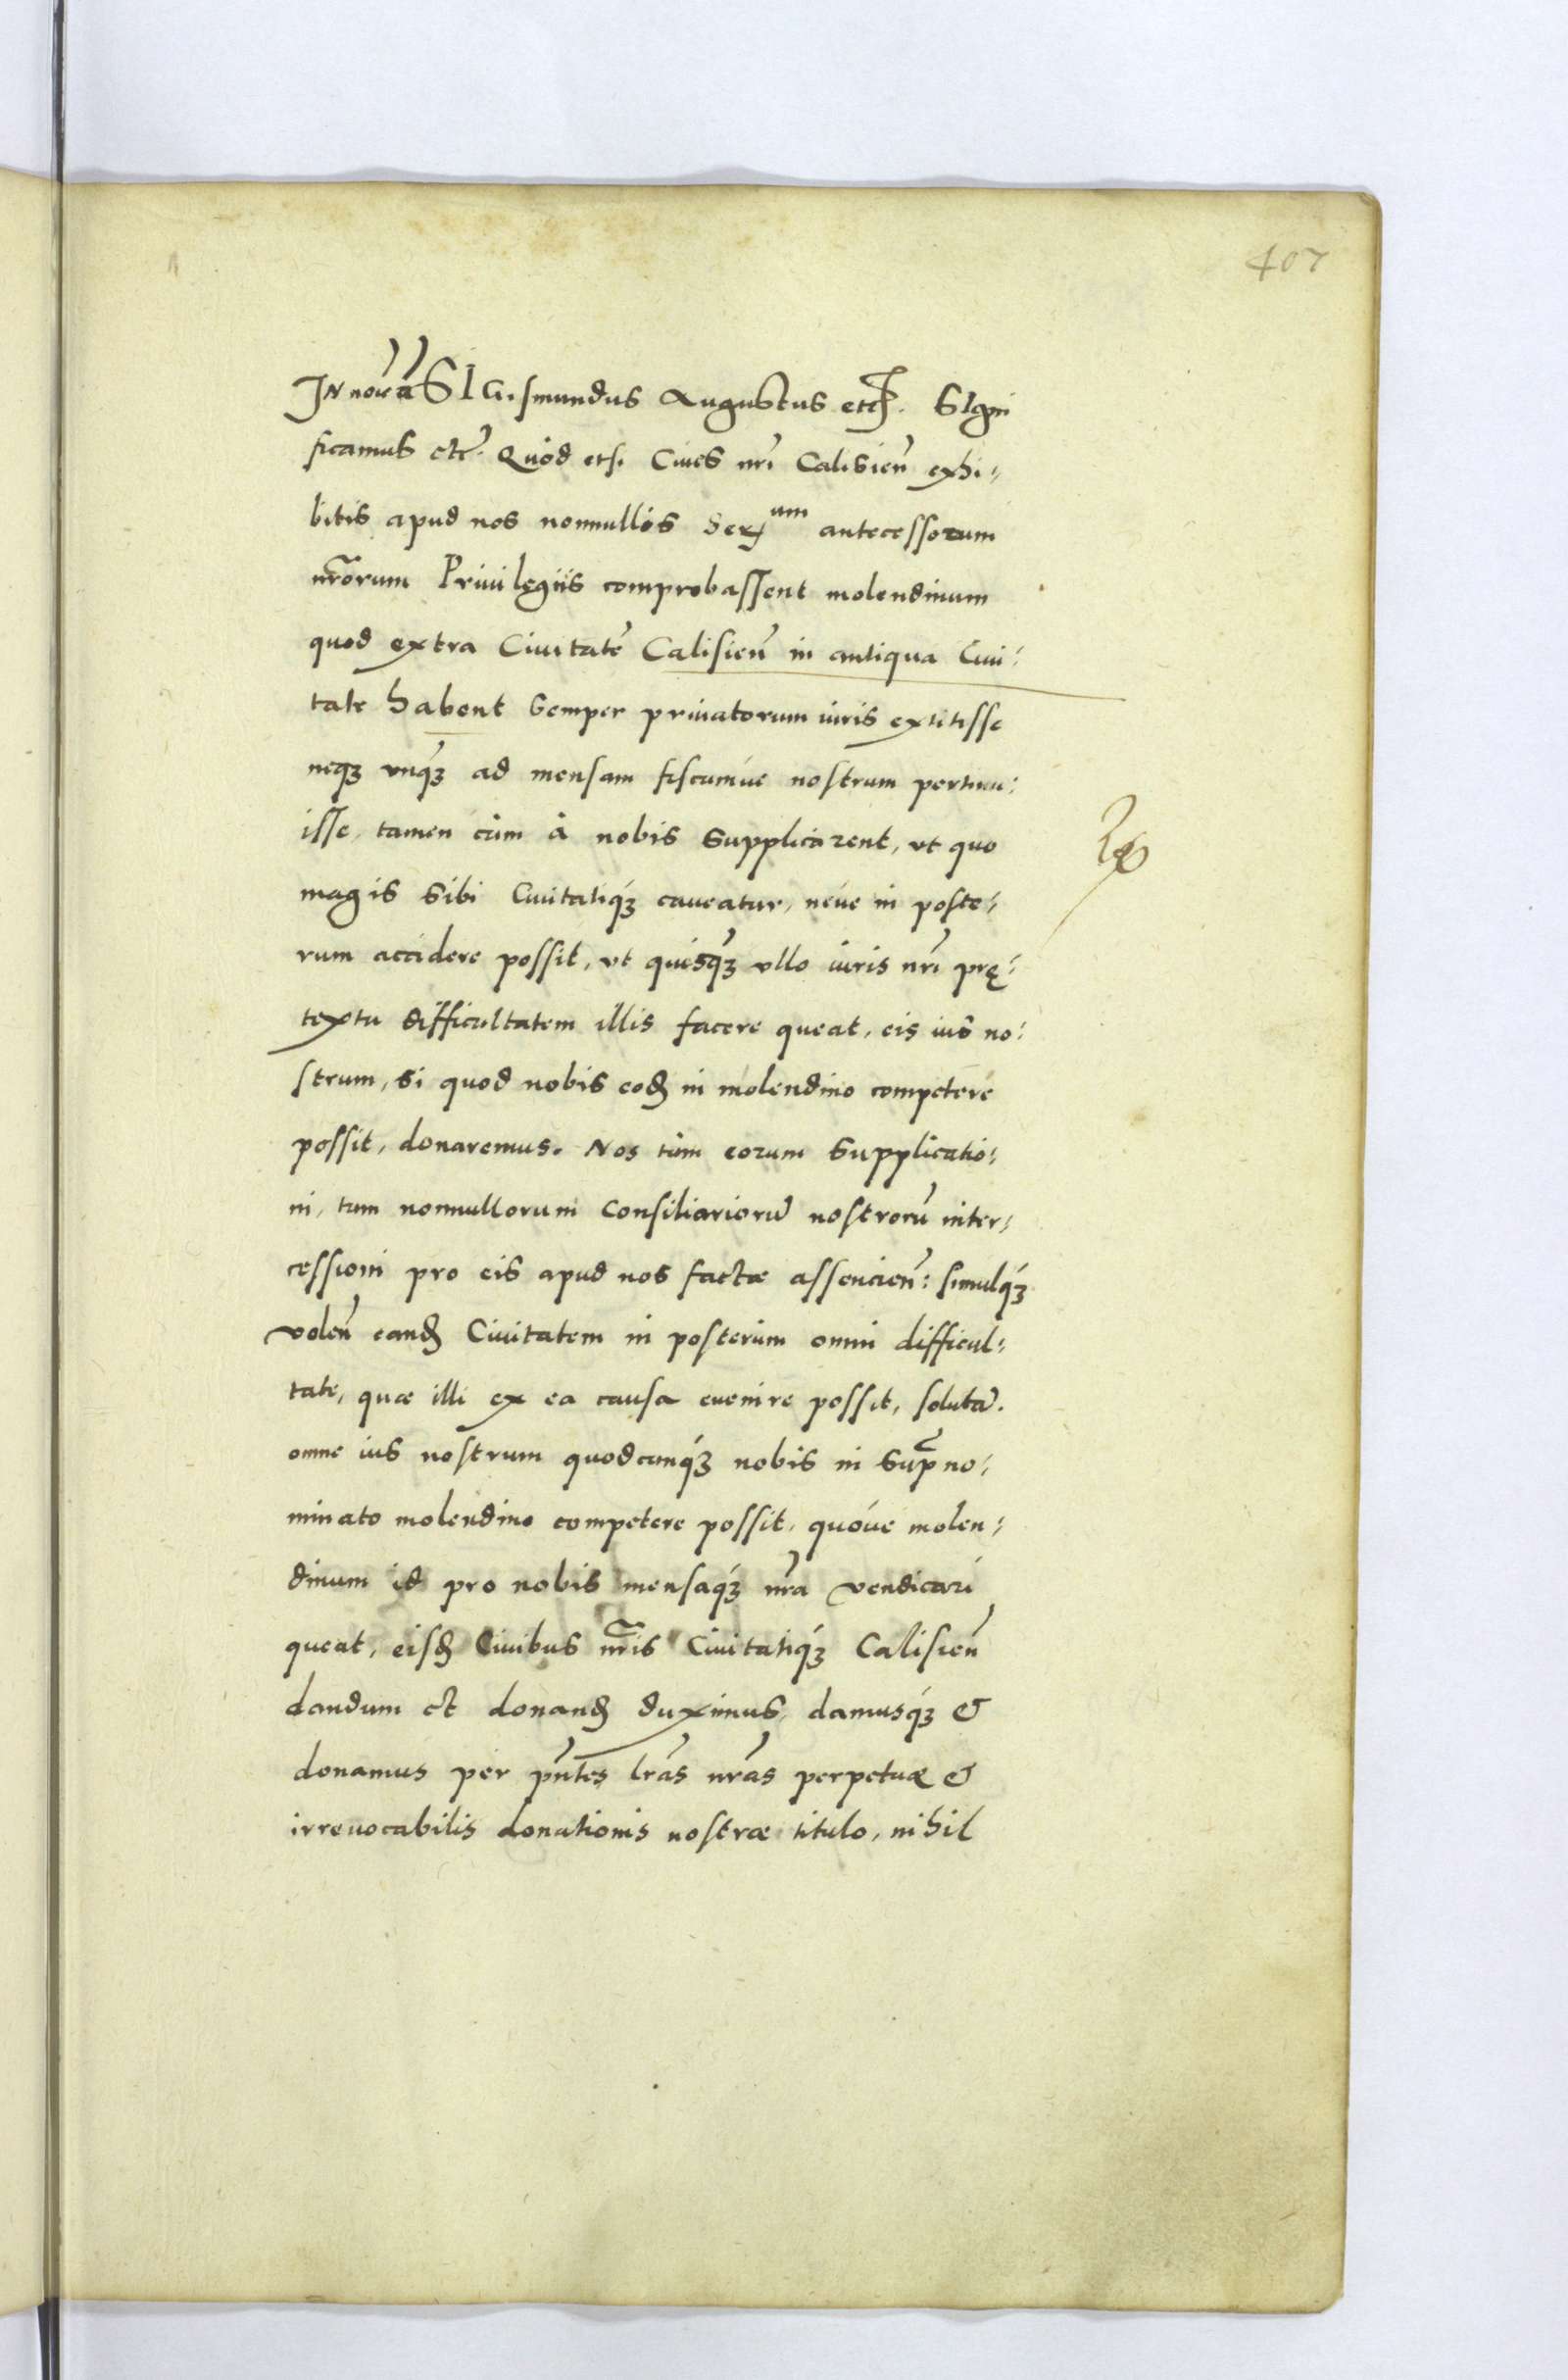 407
SIGismundus Augustus etc. SIgni
ficamus etc. Quòd etsi Ciues nrī Calisien̄ exhi:
bitis apud nos nonnullis antecessorum
nr̄orum Priuilegiis comprobassent molendinum
quod extra Ciuitatē Calisien̄ in antiqua Ciui:
tate habent semper priuatorum iuris extitisse
neqȝ vnqȝ ad mensam fiscumúe nostrum pertinu:
isse, tamen cùm à nobis supplicarent, vt quo
magis sibi Ciuitatiqȝ caueatur, néue in poste:
rum accidere possit, vt quisqȝ vllo iuris nrī prę:
textu difficultatem illis facere queat, eis ius no:
strum, si quod nobis eoď in molendino competere
possit, donaremus. Nos tùm eorum supplicatio:
ni, tum nonnullorum Consiliariorū nostrorū inter:
cessioni pro eis apud nos factæ assencien̄: simulqȝ
volen̄ eanď Ciuitatem in posterùm omni difficul:
tate, quæ illi ex ea causa euenire possit, solutā.
omne ius nostrum quodcunqȝ nobis in sup̄no:
minato molendino competere possit, quóue molen:
dinum id pro nobis mensaqȝ nrā vendicari
queat, eisď Ciuibus nr̄is Ciuitatiqȝ Calisien̄
dandum et donanď duximus, damusqȝ &
donamus per pn̄tes lrās nrās perpetuæ &
irreuocabilis donationis nostræ titulo, nihil